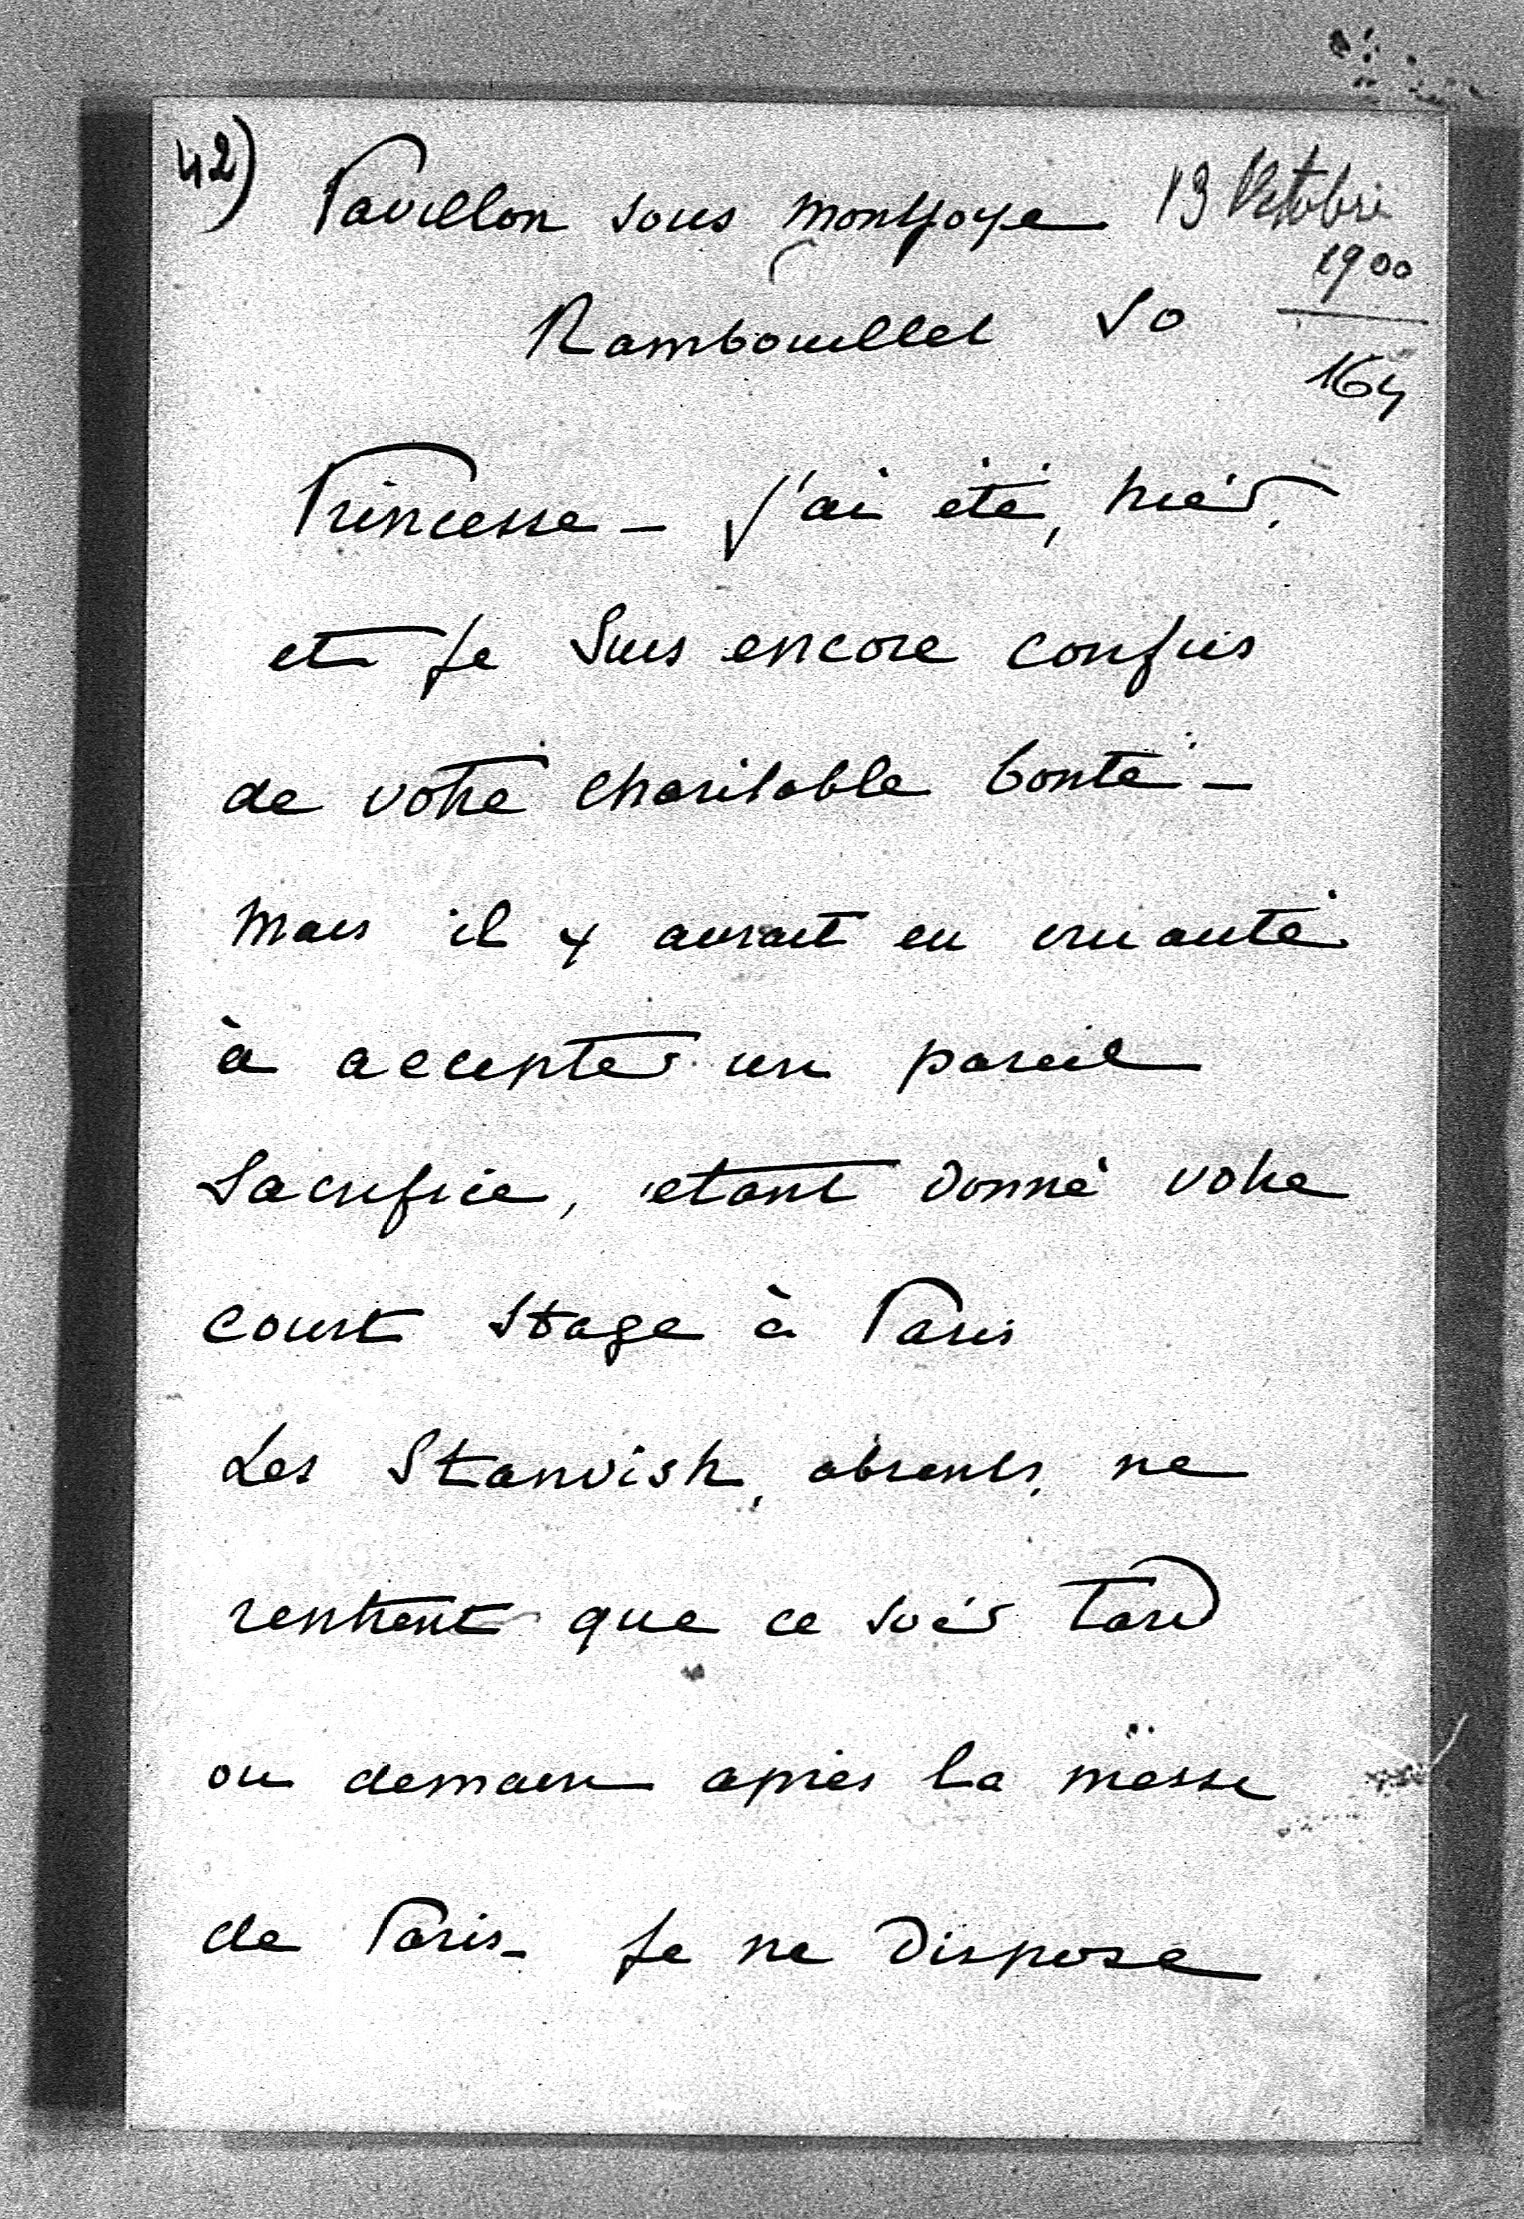 42) Pavillon sous Montjoye 13 Octobre
1900
Rambouillet SO
164
Princesse - J'ai été, hier,
et je suis encore confus
de votre charitable bonté -
Mais il y aurait eu cruauté
à accepter un pareil
sacrifice, étant donné votre
court stage à Paris
Les Standish, absents, ne
rentrent que ce soir tard
ou demain après la messe
de Paris - Je ne dispose